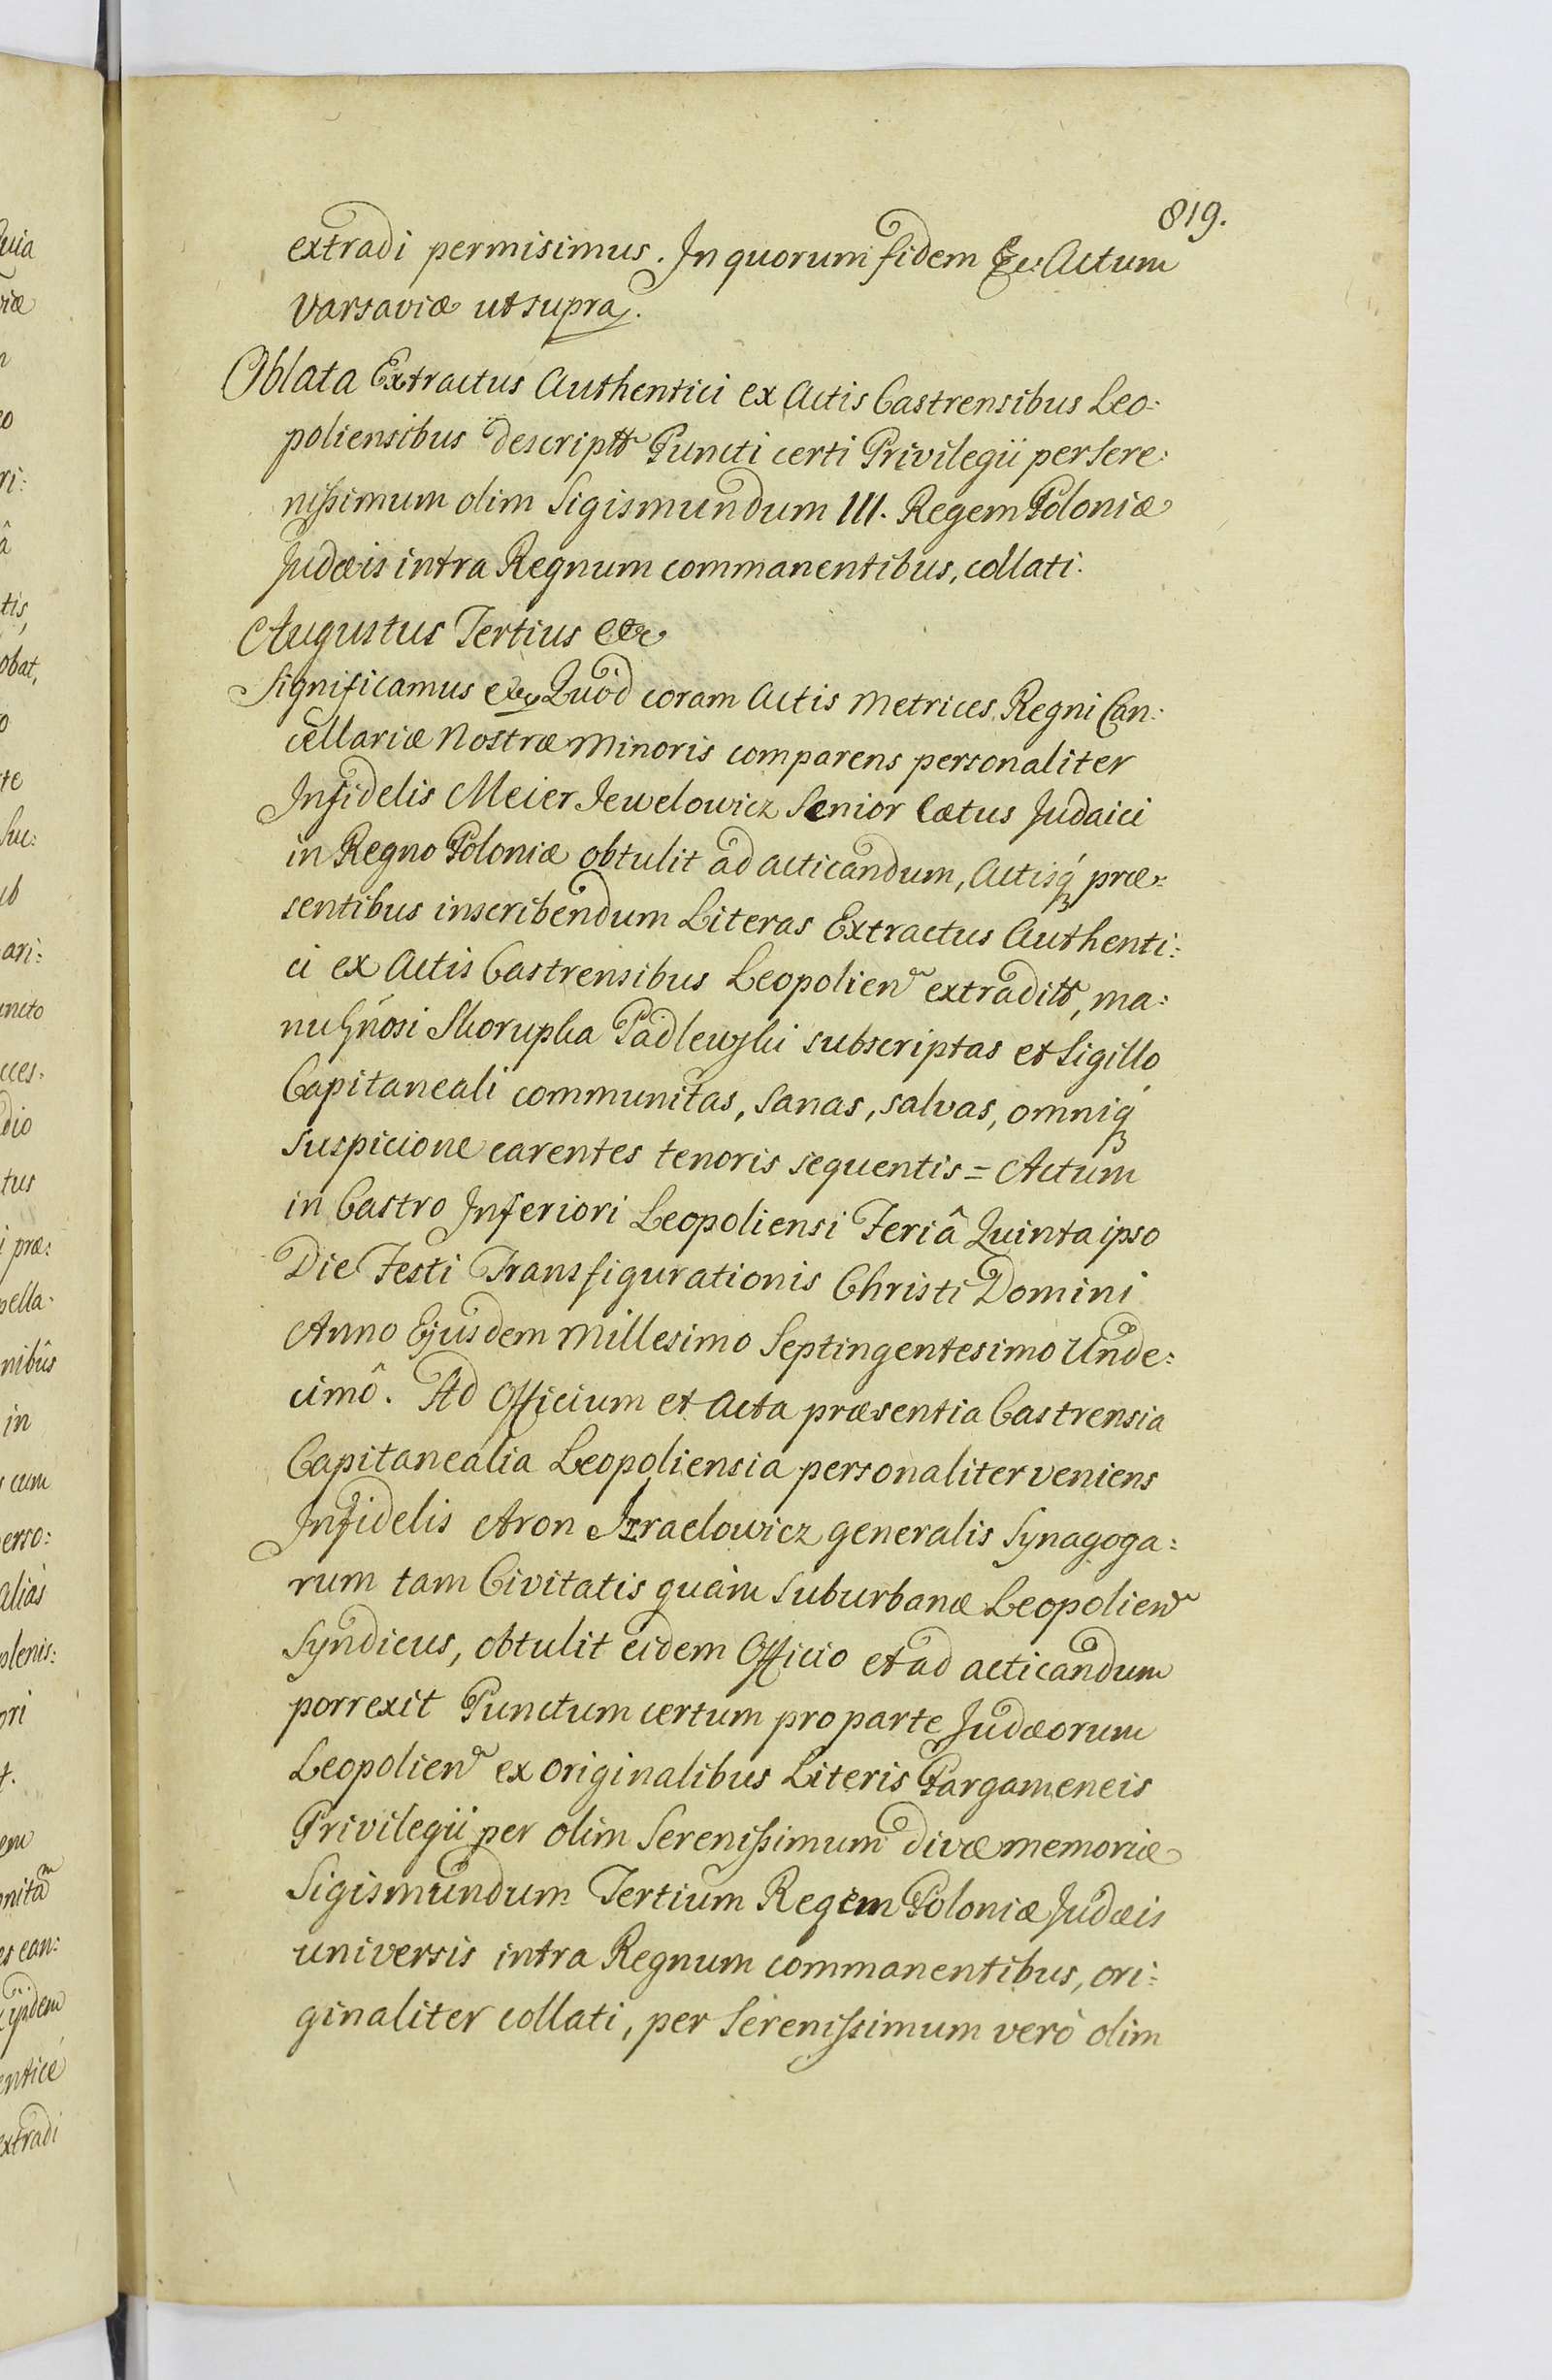 819.
extradi permisimus. In quorum fidem &c. Actum
Varsaviæ ut supra.
Oblata Extractus Authentici ex Actis Castrensibus Leo:
poliensibus descriptt Puncti certi Privilegii per Sere:
nissimum olim Sigismundum III. Regem Poloniæ
Judæis intra Regnum commanentibus, collati.
Augustus Tertius etc
Significamus etc Quod coram Actis Metrices Regni Can:
cellariæ Nostræ Minoris comparens personaliter
Infidelis Meier Jewelowicz Senior Cætus Judaici
in Regno Poloniæ obtulit ad acticandum, Actisq́ præ:
sentibus inscribendum Literas Extractus Authenti:
ci ex Actis Castrensibus Leopolien extraditt, ma:
nu Gnosi Skorupka Padlewski subscriptas et Sigillo
Capitaneali communitas, Sanas, salvas, omniq́
Suspicione carentes tenoris sequentis = Actum
in Castro Inferiori Leopoliensi Feriâ Quinta ipso
Die Festi Transfigurationis Christi Domini
Anno Ejusdem Millesimo Septingentesimo Unde:
cimô. Ad Officium et Acta præsentia Castrensia
Capitanealia Leopoliensia personaliter veniens
Infidelis Aron Izraelowicz generalis Synagoga:
rum tam Civitatis quàm Suburbanæ Leopolien
Syndicus, obtulit eidem Officio et ad acticandum
porrexit Punctum certum pro parte Judæorum
Leopolien ex originalibus Literis Pargameneis
Privilegii per olim Serenissimum divæ memoriæ
Sigismundum Tertium Regem Poloniæ Judæis
universis intra Regnum commanentibus, ori:
ginaliter collati, per Serenissimum verò olim